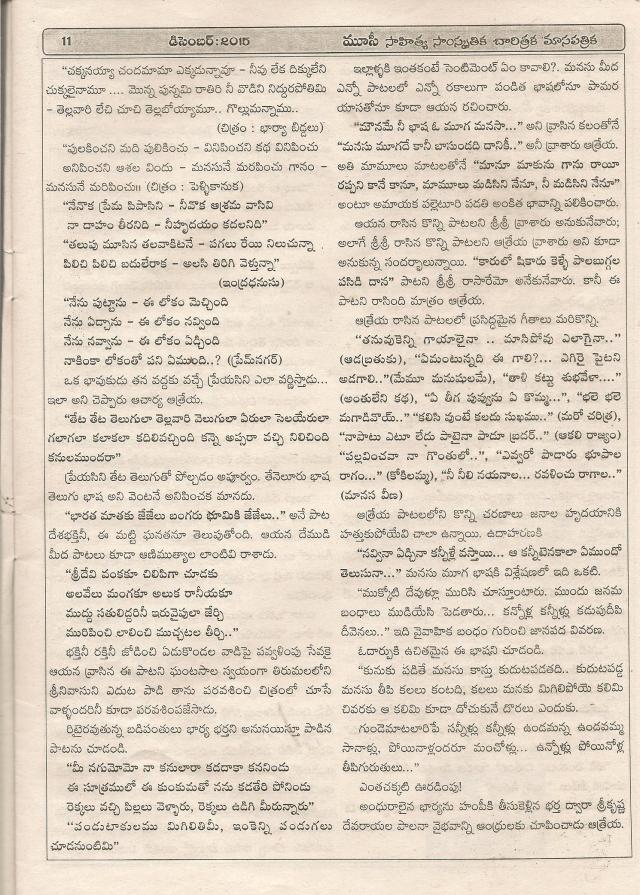 11 డిసెంబర్:2015 మూసీ సాహిత్య సాంస్కృతిక చారిత్రక మాసపత్రిక
“చక్కనయ్యా చందమామా ఎక్కడున్నావూ – నీవు లేక దిక్కులేని
చుక్కలైనామూ .... మొన్న పున్నమి రాతిరి నీ వొడిని నిద్దురపోతిమి
– తెల్లవారి లేచి చూచి తెల్లబోయ్యామూ.. గొల్లుమన్నాము..
(చిత్రం : భార్యా బిడ్డలు)
“పులకించని మది పులికించు – వినిపించని కథ వినిపించు
అనిపించని ఆశల విందు – మనసునే మరపించు గానం –
మనసునే మరిపించు॥ (చిత్రం : పెళ్ళికానుక)
“నేనొక ప్రేమ పిపాసిని – నీవొక ఆశ్రమ వాసివి
నా దాహం తీరనిది – నీహృదయం కదలనిది”
“తలుపు మూసిన తలవాకిటనే – పగలు రేయి నిలుచున్నా
పిలిచి పిలిచి బదులేరాక – అలసి తిరిగి వెళ్తున్నా”
(ఇంద్రధనుసు)
“నేను పుట్టాను – ఈ లోకం మెచ్చింది
నేను ఏడ్చాను – ఈ లోకం నవ్వింది
నేను నవ్వాను – ఈ లోకం ఏడ్చింది
నాకింకా లోకంతో పని ఏముంది..? (ప్రేమ్‌నగర్)
ఒక భావుకుడు తన వద్దకు వచ్చే ప్రేయసిని ఎలా వర్ణిస్తాడు...
ఇలా అని చెప్పారు ఆచార్య ఆత్రేయ.
“తేట తేట తెలుగులా తెల్లవారి వెలుగులా ఏరులా సెలయేరులా
గలాగలా కలాకలా కదిలివచ్చింది కన్నె అప్సరా వచ్చి నిలిచింది
కనులముందరా”
ప్రేయసిని తేట తెలుగుతో పోల్చడం అపూర్వం. తేనెలూరు భాష
తెలుగు భాష అని వెంటనే అనిపించక మానదు.
“భారత మాతకు జేజేలు బంగరు భూమికి జేజేలు..” అనే పాట
దేశభక్తినీ, ఈ మట్టి ఘనతనూ తెలుపుతోంది. ఆయన దేముడి
మీద పాటలు కూడా ఆణిముత్యాల లాంటివి రాశాడు.
“శ్రీదేవి వంకకూ చిలిపిగా చూడకు
అలవేలు మంగకూ అలుక రానీయకూ
ముద్దు సతులిద్దరినీ ఇరువైపులా జేర్చి
మురిపించి లాలించి ముచ్చటల తీర్చి..”
భక్తినీ రక్తినీ జోడించి ఏడుకొండల వాడిపై పవ్వళింపు సేవకై
ఆయన వ్రాసిన ఈ పాటని ఘంటసాల స్వయంగా తిరుమలలోని
శ్రీనివాసుని ఎదుట పాడి తాను పరవశించి చిత్రంలో చూసే
వాళ్ళందరినీ కూడా పరవశింపజేసాడు.
రిటైరవుతున్న బడిపంతులు భార్య భర్తని అనునయిస్తూ పాడిన
పాటను చూడండి.
“మీ నగుమోమో నా కనులారా కడదాకా కననిండు
ఈ సూత్రములో ఈ కుంకుమతో నను కడతేరి పోనిండు
రెక్కలు వచ్చి పిల్లలు వెళ్ళారు, రెక్కలు ఉడిగి మీరున్నారు”
“పండుటాకులము మిగిలితిమీ, ఇంకెన్ని పండుగలు
చూడనుంటిమి”
ఇల్లాళ్ళకి ఇంతకంటే సెంటిమెంట్ ఏం కావాలి?. మనసు మీద
ఎన్నో పాటలలో ఎన్నో రకాలుగా పండిత భాషలోనూ పామర
యాసతోనూ కూడా ఆయన రచించారు.
“మౌనమే నీ భాష ఓ మూగ మనసా...” అని వ్రాసిన కలంతోనే
“మనసు మూగదే కానీ బాసుండది దానికీ..” అనీ వ్రాశారు ఆత్రేయ.
అతి మామూలు మాటలతోనే “మానూ మాకును గాను రాయీ
రప్పని కానే కానూ, మామూలు మడిసిని నేనూ, నీ మడిసిని నేనూ”
అంటూ అమాయక పల్లెటూరి పడతి అంకిత భావాన్ని పలికించారు.
ఆయన రాసిన కొన్ని పాటలని శ్రీశ్రీ వ్రాశారు అనుకునేవారు;
అలాగే శ్రీశ్రీ రాసిన కొన్ని పాటలని ఆత్రేయ వ్రాశారు అని కూడా
అనుకున్న సందర్భాలున్నాయి. “కారులో షికారు కెళ్ళే పాలబుగ్గల
పసిడి దాన” పాటని శ్రీశ్రీ రాసారేమో అనేకునేవారు. కానీ ఈ
పాటని రాసింది మాత్రం ఆత్రేయ.
ఆత్రేయ రాసిన పాటలలో ప్రసిద్ధమైన గీతాలు మరికొన్ని.
“తనువుకెన్ని గాయాలైనా .. మాసిపోవు ఎలాగైనా..”
(ఆడబ్రతుకు), “ఏమంటున్నది ఈ గాలి?... ఎగిరే పైటని
అడగాలి..”(మేమూ మనుషులమే), “తాళి కట్టు శుభవేళా....”
(అంతులేని కథ), “ఏ తీగ పువ్వును ఏ కొమ్మ...”, “భలె భలె
మగాడివోయ్..” “కలిసి వుంటే కలదు సుఖము..” (మరో చరిత్ర),
“నాపాటు ఎటూ లేదు పాటైనా పాడూ బ్రదర్..” (ఆకలి రాజ్యం)
“పల్లవించవా నా గొంతులో..”, “ఎవ్వరో పాడారు భూపాల
రాగం...” (కోకిలమ్మ), “నీ నీలి నయనాల... రవళించు రాగాల..”
(మానస వీణ)
ఆత్రేయ పాటలలోని కొన్ని చరణాలు జనాల హృదయానికి
హత్తుకుపోయేవి చాలా ఉన్నాయి. ఉదాహరణకి
“నవ్వినా ఏడ్చినా కన్నీళ్లే వస్తాయి... ఆ కన్నీటెనకాలా ఏముందో
తెలుసునా...” మనసు మూగ భాషకి విశ్లేషణలో ఇది ఒకటి.
“ముక్కోటి దేవుళ్లూ మురిసి చూస్తుంటారు. ముందు జనమ
బంధాలు ముడియేసి పెడతారు... కన్నోళ్ల కన్నీళ్లు కడుపుదీపి
దీవెనలు..” ఇది వైవాహిక బంధం గురించి జానపద వివరణ.
ఓదార్పుకి ఉచితమైన ఈ భాషని చూడండి.
“కునుకు పడితే మనసు కాస్త కుదుటపడతది.. కుదుటపడ్డ
మనసు తీపి కలలు కంటది, కలలు మనకు మిగిలిపోయే కలిమి
చివరకు ఆ కలిమి కూడా దోచుకునే దొరలు ఎందుకు.
గుండెమాటలారిపే సన్నీళ్లు కన్నీళ్లు ఉండమన్న ఉండవమ్మ
సానాళ్లు, పోయినాళ్లందరూ మంచోళ్లు... ఉన్నోళ్లు పోయినోళ్ల
తీపిగురుతులు...”
ఎంతచక్కటి ఊరడింపు!
అంధురాలైన భార్యను హంపీకి తీసుకెళ్లిన భర్త ద్వారా శ్రీకృష్ణ
దేవరాయల పాలనా వైభవాన్ని ఆంధ్రులకు చూపించాడు ఆత్రేయ.